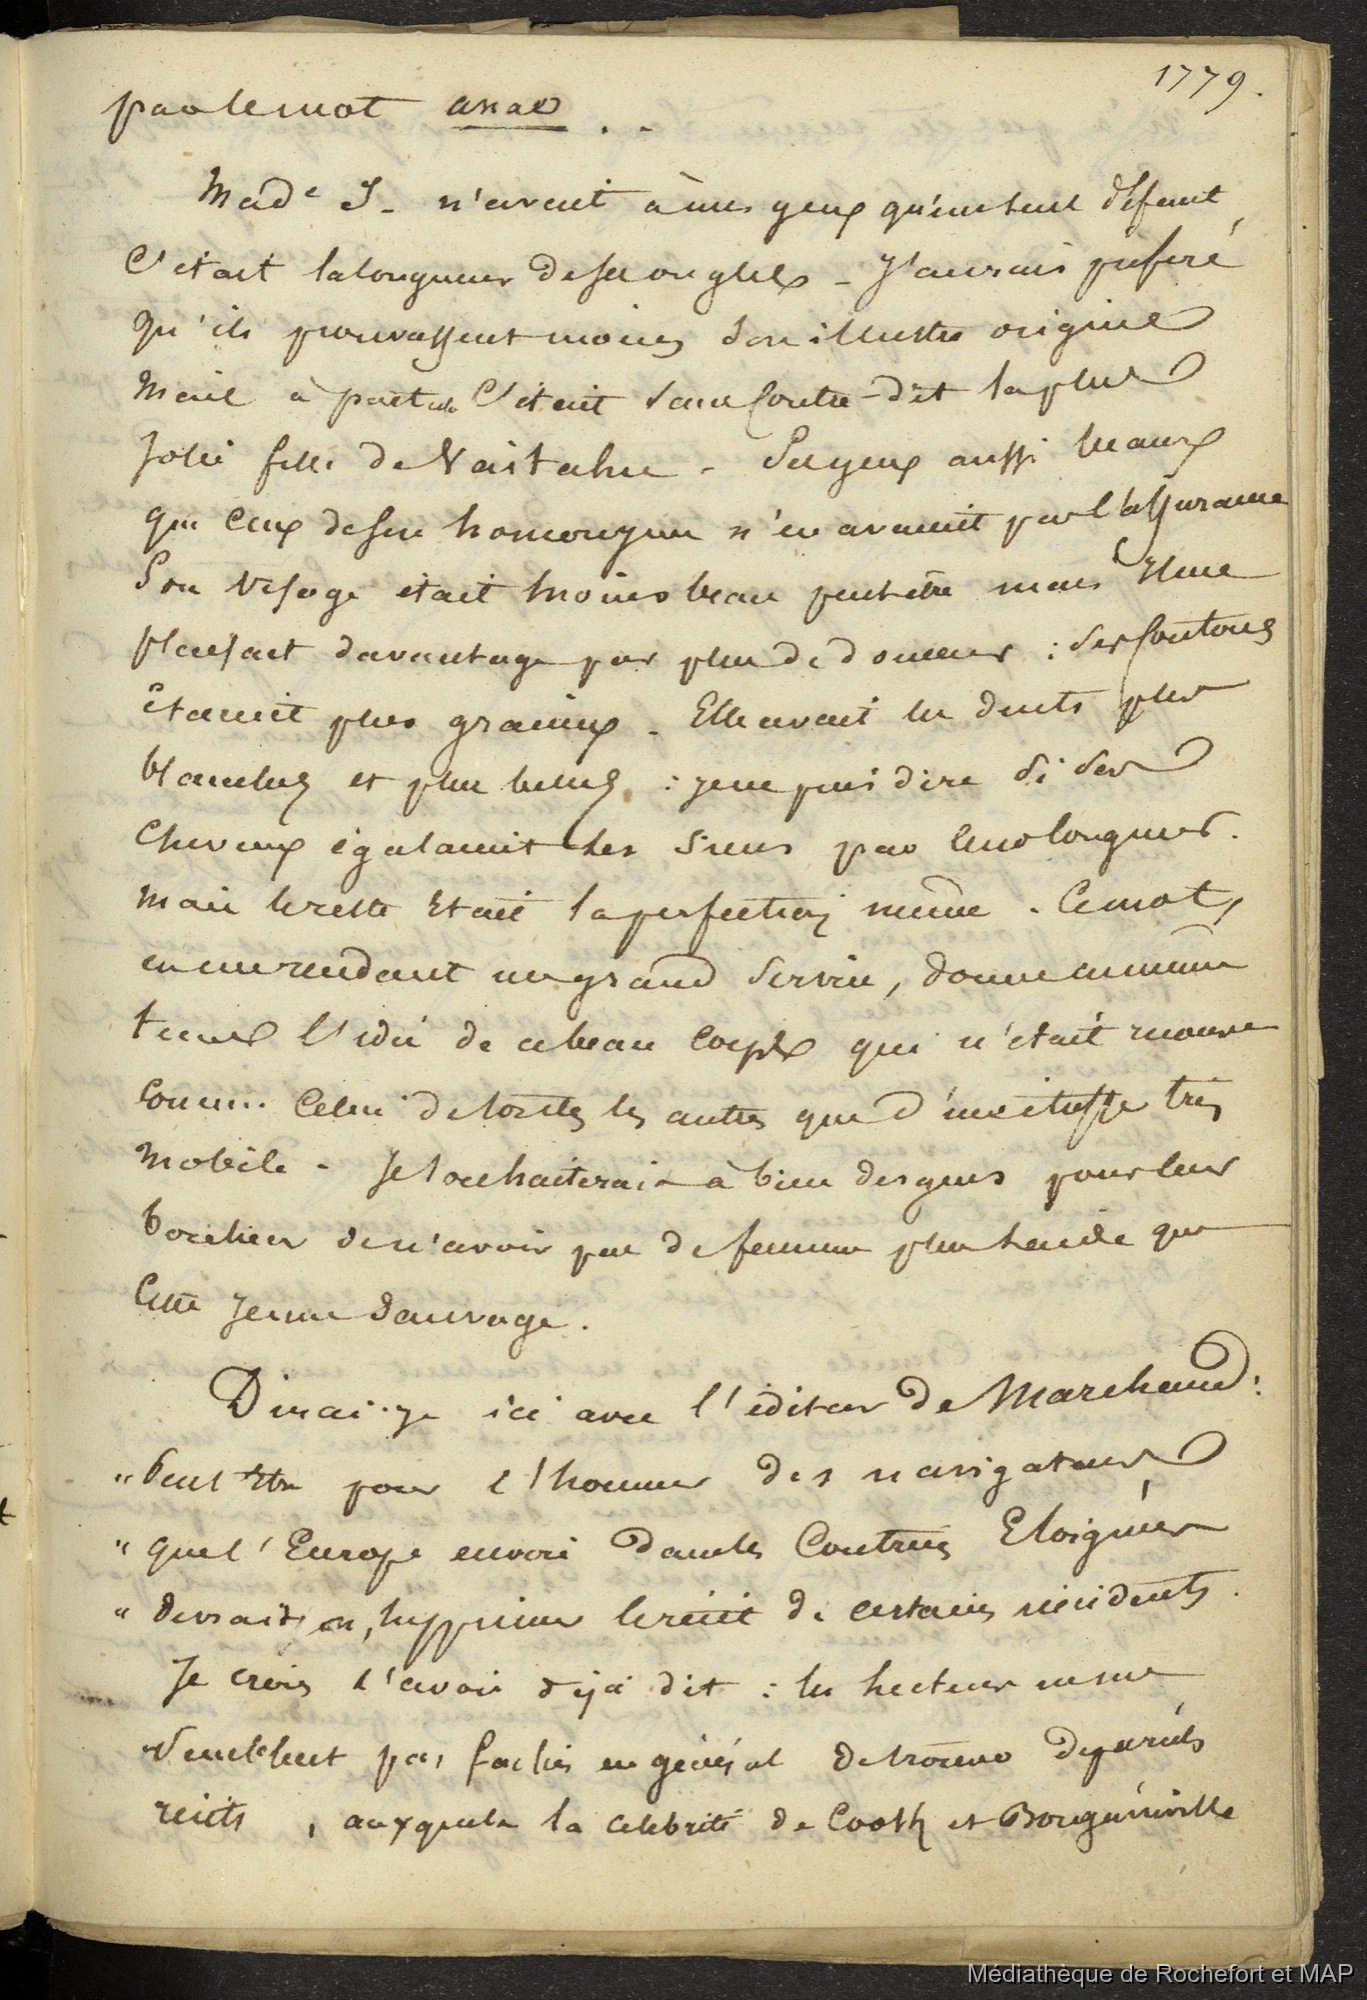 1779.
par le mot anao . .
Made S. n'avait à mes yeux qu'un seul défaut,
C'était la longueur de ses ongles - J'aurais préféré
qu'ils prouvassent moins son illustre origine
Mais à part cela C'était sans Contre-dit la plus
Jolie fille de Vaïtahu - Ses yeux aussi beaux
que Ceux de son homonyme n'en avaient pas l'assurance
Son visage était moins beau peut être mais Il me
plaisait davantage par plus de douceur : Ses Contours
étaient plus gracieux - Elle avait les dents plus
blanches et plus belles : je ne puis dire Si Ses
Cheveux égalaient les Siens par leur longueur.
Mais le reste était la perfection même . Ce mot,
en me rendant un grand Service, donne en même
temps l'idée de ce beau Corps qui n'était
Comme Celui de toutes les autres que d'une étoffe très
Mobile - Je souhaiterais à bien des gens pour leur
bonheur de n'avoir pas de femme plus laide que
Cette Jeune Sauvage.
Dirai-je ici avec l'éditeur de Marchand :
" Peut être pour l'honneur des navigateurs
" que l'Europe envoie dans les Contrées Eloignées
" devrait on, supprimer le récit de certains incidents.
Je crois l'avoir déjà dit : les lecteurs ne me
Semblent pas fachés en général de trouver de pareils
récits , auxquels la célébrité de Cook et Bougainville
Médiathèque de Rochefort et MAP